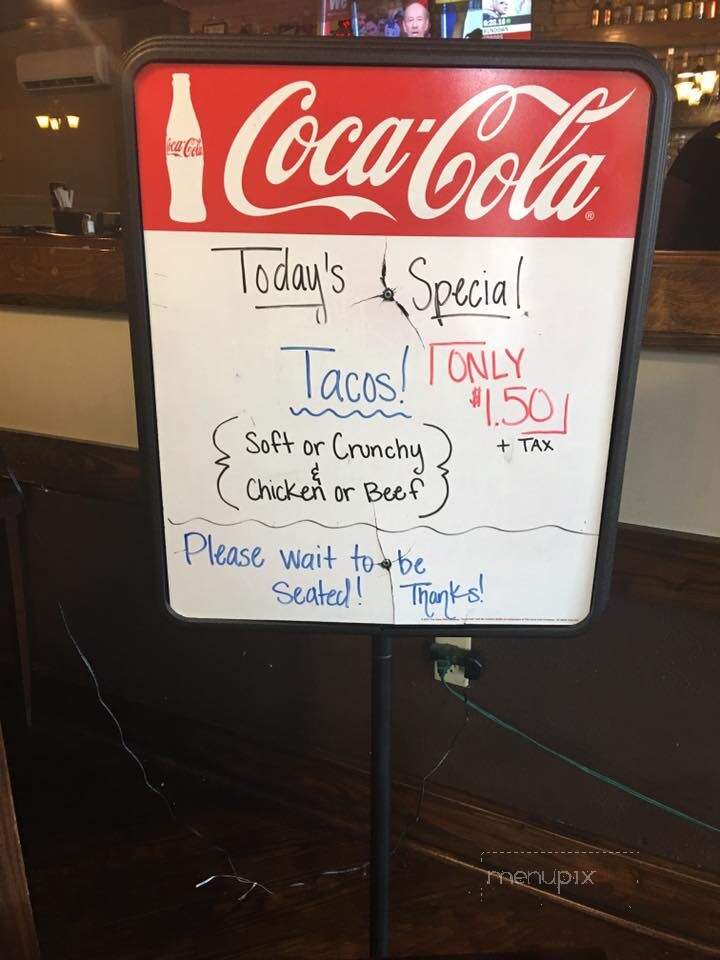 Coca-Cola
Coca-Cola
Today's Special
Tacos!
ONLY
$1.50
+ TAX
Soft or Crunchy
&
Chicken or Beef
Please wait to be
Seated! Thanks!
menupix